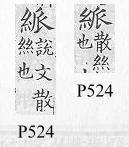 說文散
絲也
P524
散絲
也
P524